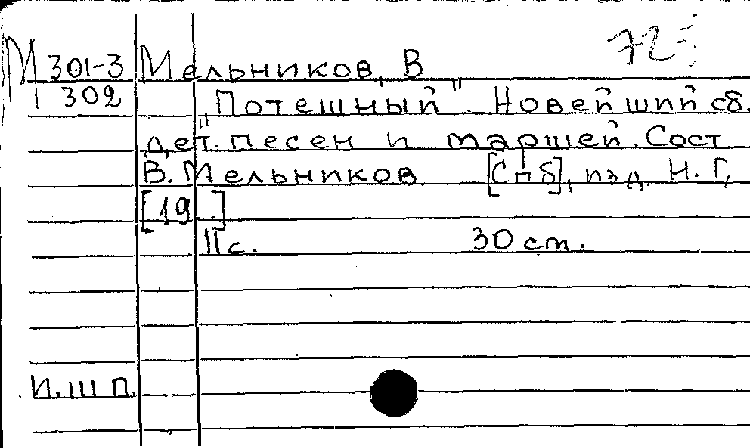 72
М 301-3 Мельников, В
1 302 "Потешный". Новейший сб.
дет. песен и маршей. Сост
В. Мельников [Спб], изд. Н. Г,
[19 .]
11 с. 30 см.
И. Ш П.